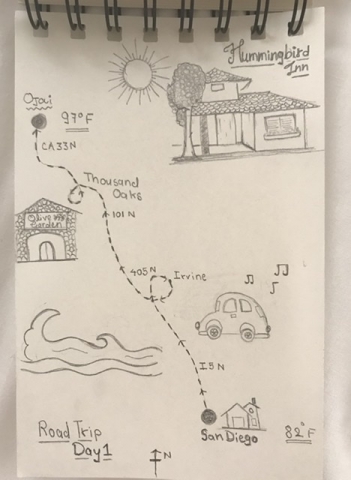 Hummingbird
Inn
Ojai
97°F
CA33N
Thousand
Oaks
101 N
Olive
Garden
405 N
Irvine
I5 N
San Diego
82°F
Road Trip
Day 1
N